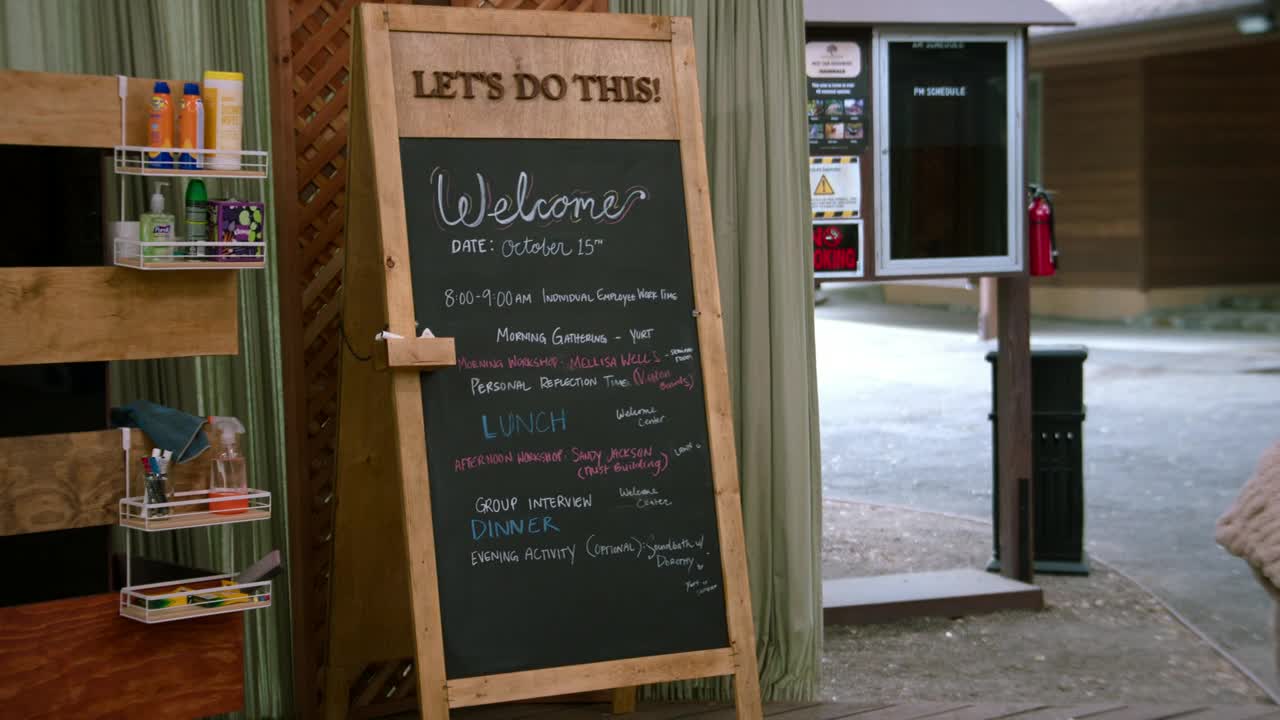 LET'S DO THIS!
Welcome
DATE: October 15TH
8:00-9:00AM INDIVIDUAL EMPLOYEE WORK TIME
MORNING GATHERING - YURT
MORNING WORKSHOP: MELLISA WELLS -
PERSONAL REFLECTION TIME (Vision Boards)
LUNCH Welcome Center
AFTERNOON WORKSHOP: SANDY JACKSON (Trust Building) LAWN
GROUP INTERVIEW Welcome Center
DINNER
EVENING ACTIVITY (OPTIONAL): Soundbath w/ Dorothy
Yurt
AM SCHEDULE
PM SCHEDULE
NO SMOKING